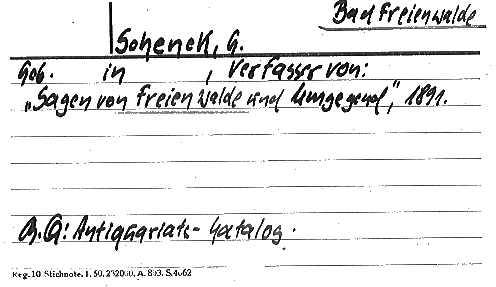 Bad Freienwalde
Schenck, G.
Geb. in , Verfasser von:
„Sagen von Freienwalde und Umgegend", 1891.
Antiquariats-Katalog.
Reg. 10 Stichnote. 1. 50. A. 803. S. 4062